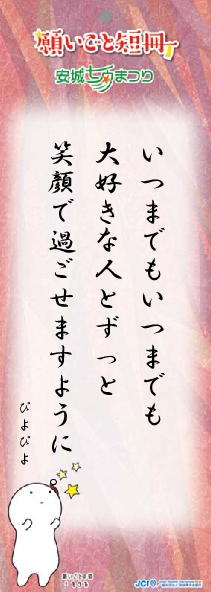 願いごと短冊
安城七夕まつり
いつまでもいつまでも
大好きな人とずっと
笑顔で過ごせますように
ぴよぴよ
JCI